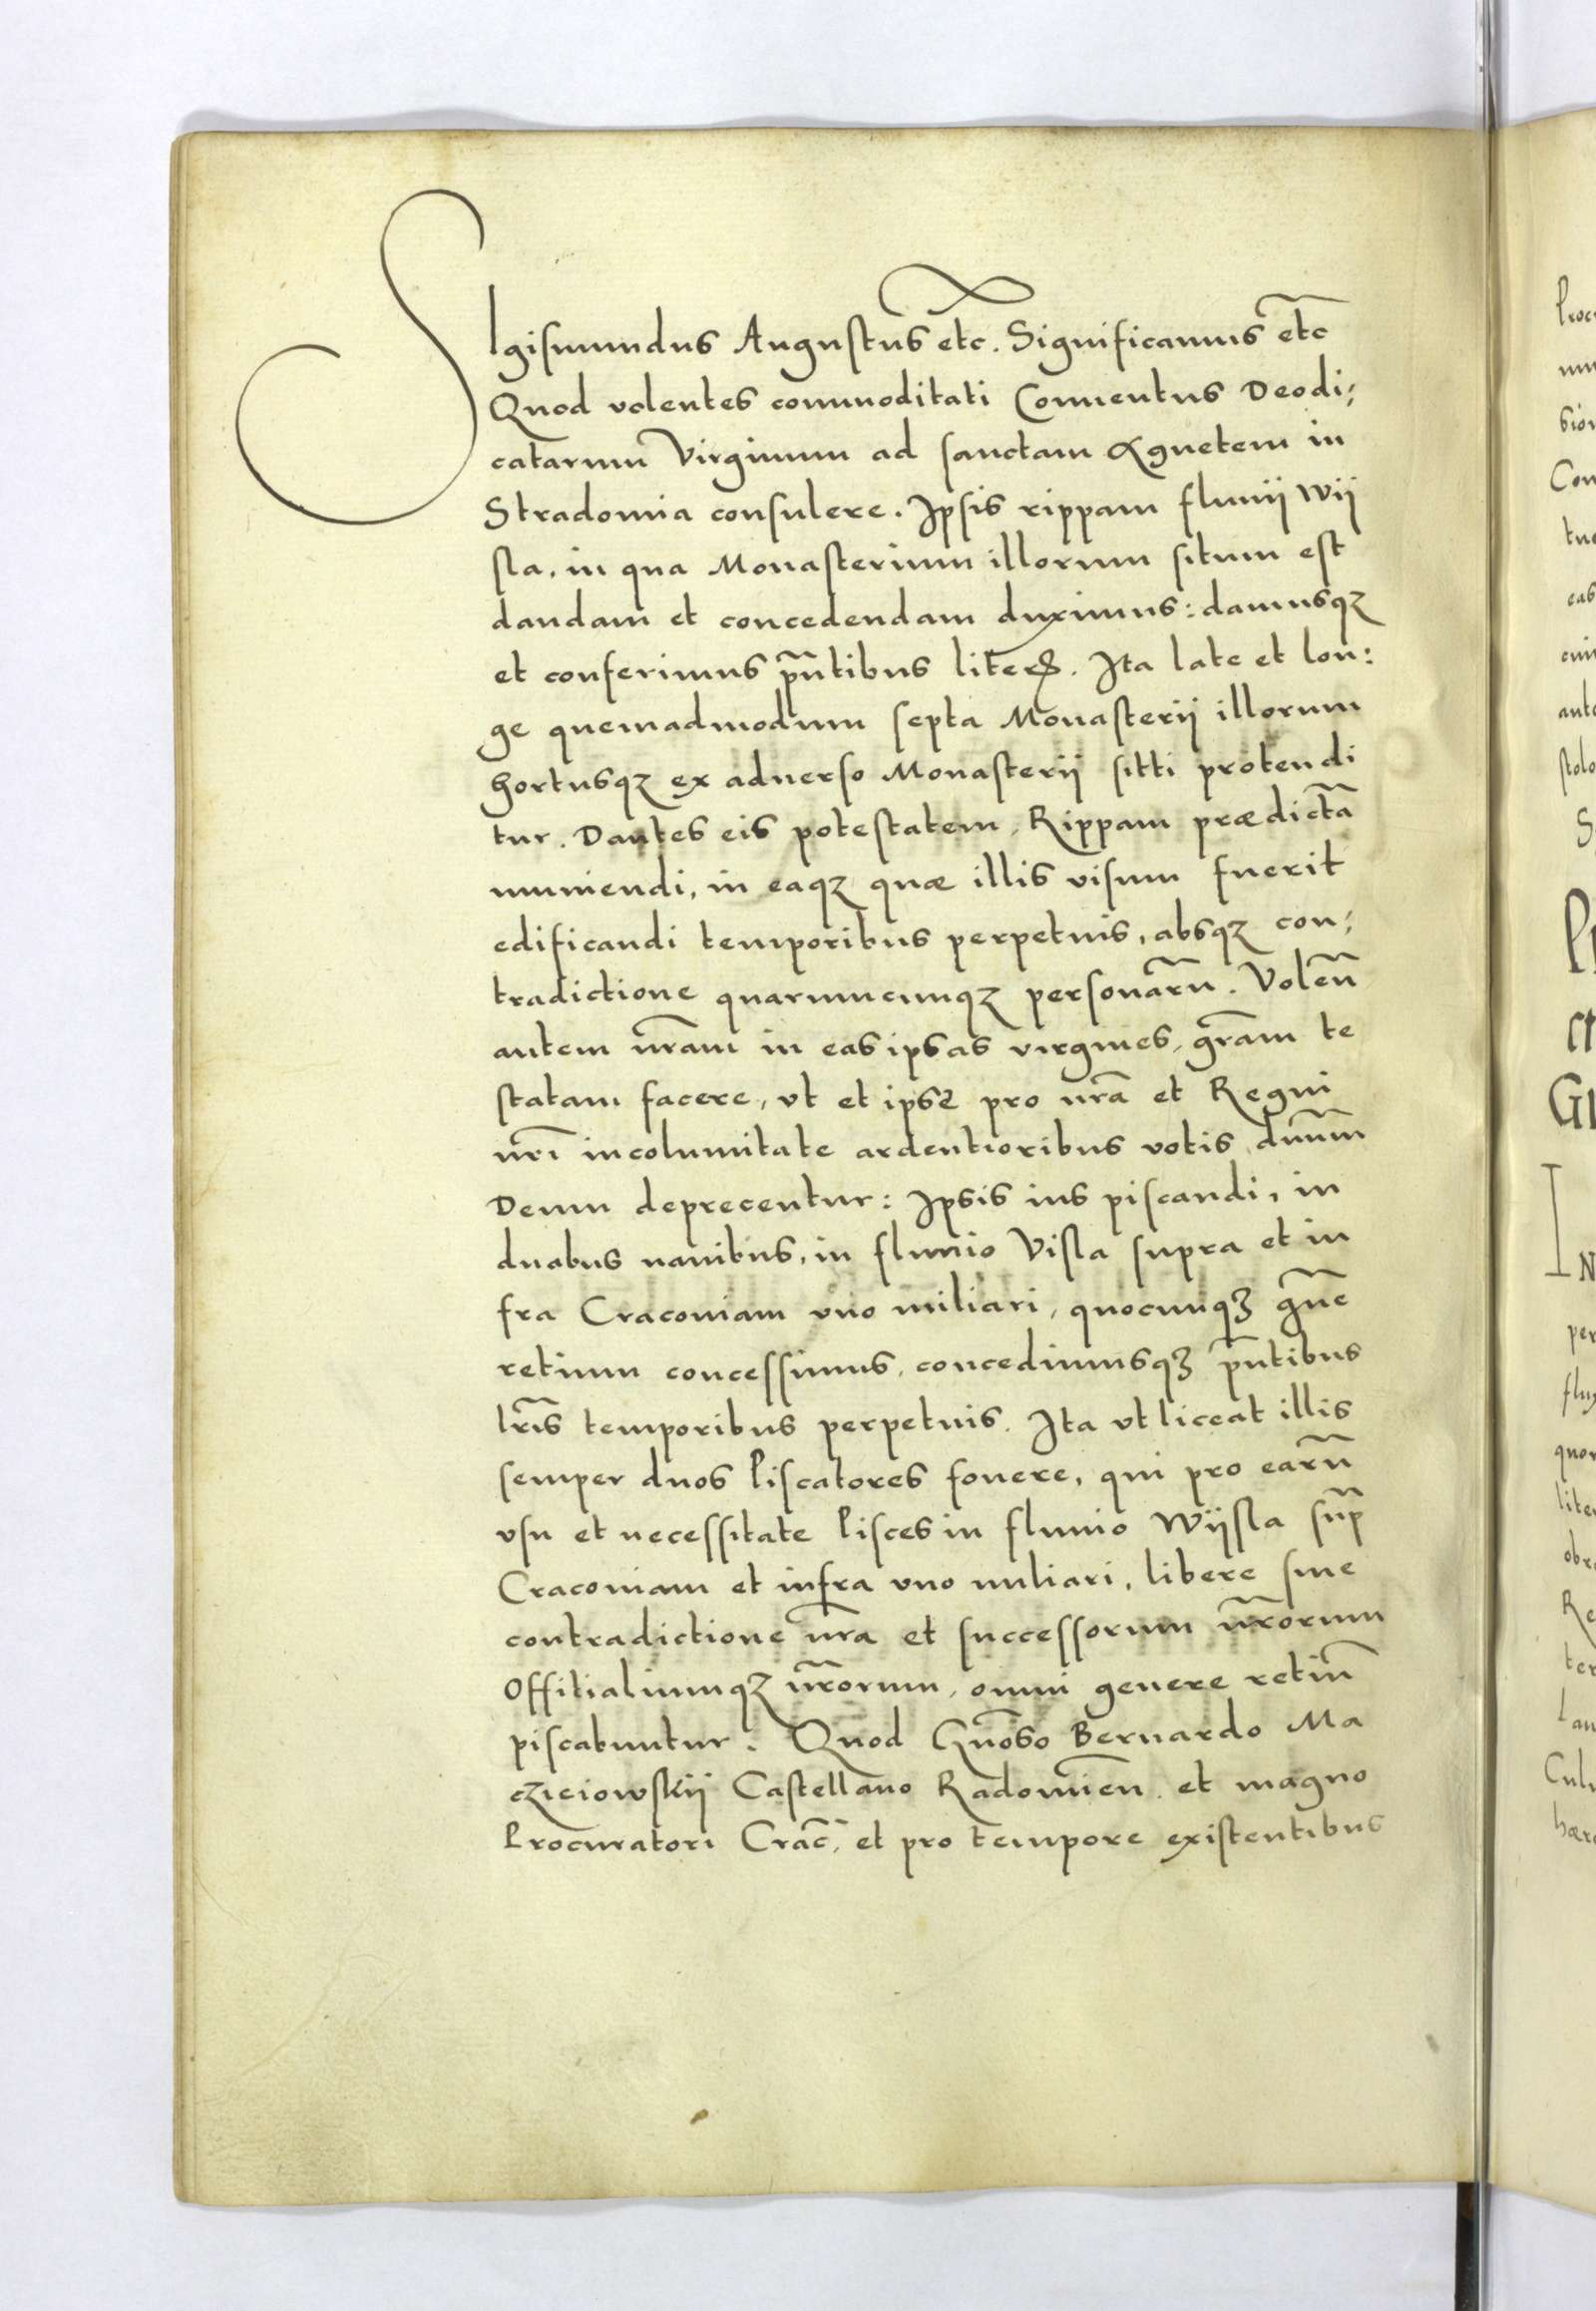 SIgismundus Augustus etc. Significamus etc̃
Quod volentes commoditati Conuentus Deodi;
catarum Virginum ad sanctam Agnetem in
Stradomia consulere. Ipsis rippam fluuij Wij
sla, in qua Monasterium illorum situm est
dandam et concedendam duximus: damusqꝫ
et conferimus pñtibus literꝭ. Ita late et lon:
ge quemadmodum septa Monasterij illorum
hortusqꝫ ex aduerso Monasterij sitti protendi
tur. Dantes eis potestatem, Rippam prædictã
muniendi, in eaqꝫ quæ illis visum fuerit
edificandi temporibus perpetuis, absqꝫ con;
tradictione quarumcumqꝫ personarũ. Volẽn
autem nr̃am in eas ipsas virgines, gr̃am te
statam facere, vt et ipsę pro nr̃a et Regni
nr̃i incolumitate ardentioribus votis dnũm
Deum deprecentur: Ipsis ius piscandi, in
duabus nauibus, in fluuio Visla supra et in
fra Cracouiam vno miliari, quocunqꝫ gñe
retium concessimus, concedimusqꝫ pñtibus
lr̃is temporibus perpetuis. Ita vt liceat illis
semper duos Piscatores fouere, qui pro earũ
vsu et necessitate Pisces in fluuio Wijsla sup̃
Cracouiam et infra vno miliari, libere sine
contradictione nr̃a et successorum nr̃orum
Offitialiumqꝫ nr̃orum, omni genere retiũ
piscabuntur. Quod Gñoso Bernardo Ma
cziciowskij Castellano Radomieñ. et magno
Procuratori Crac̃, et pro tempore existentibus